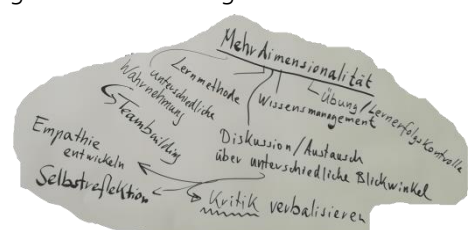 Mehrdimensionalität
Übung/Lernerfolgskontrolle
Wissensmanagement
Lernmethode
unterschiedliche
Wahrnehmung
Teambuilding
Diskussion/Austausch
über unterschiedliche Blickwinkel
Empathie
entwickeln
Selbstreflektion
Kritik verbalisieren